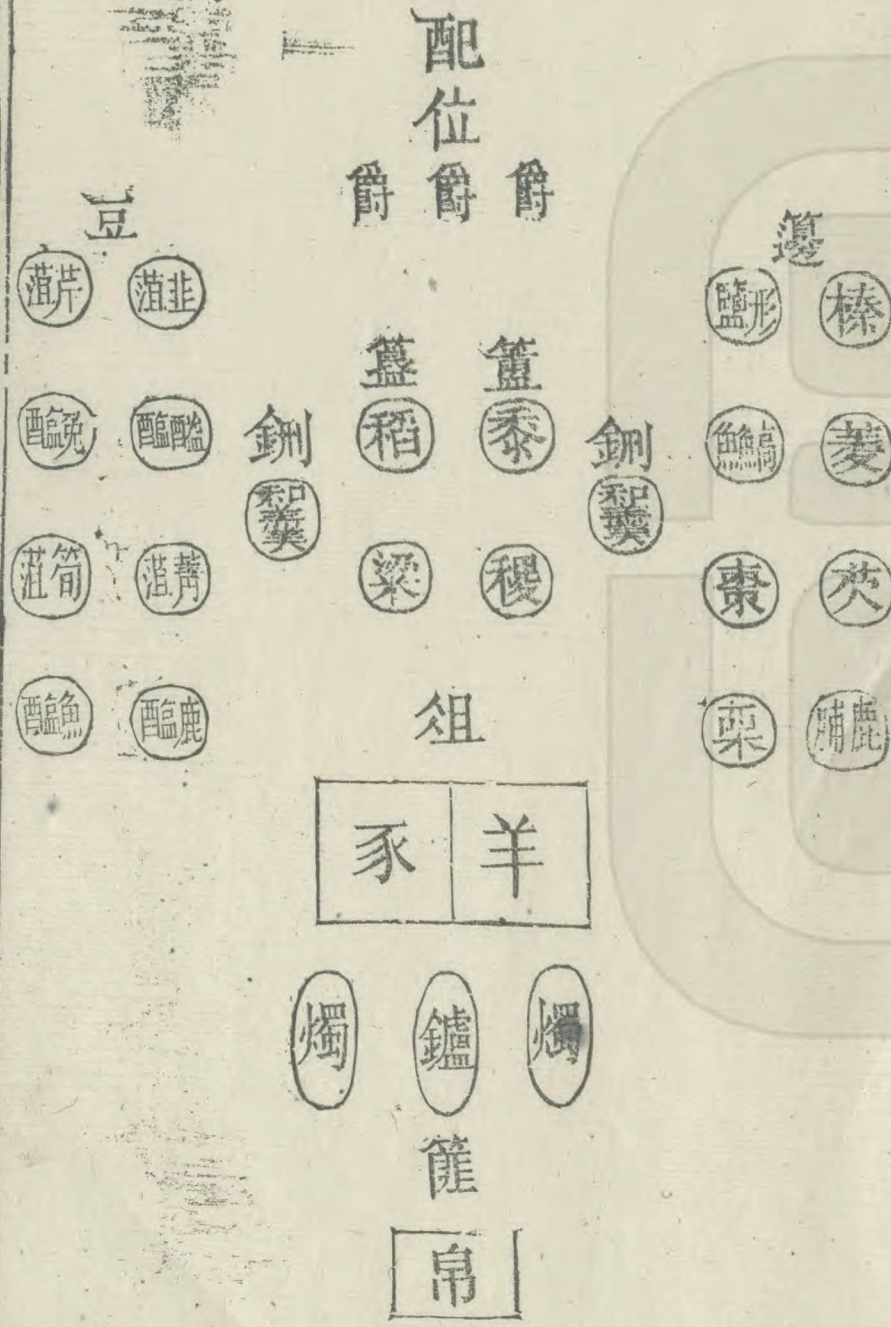 配位
爵 爵 爵
籩
榛 形鹽
菱 鱐魚
芡 棗
鹿脯 栗
簠 簋
黍 稻
稷 粱
鉶 鉶
和羹 和羹
豆
韭菹 芹菹
醓醢 兔醢
菁菹 筍菹
鹿醢 魚醢
俎
羊 豕
燭 鑪 燭
篚
帛